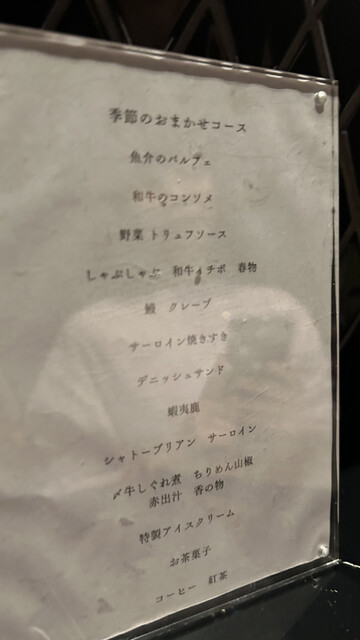 季節のおまかせコース
魚介のパルフェ
和牛のコンソメ
野菜 トリュフソース
しゃぶしゃぶ 和牛イチボ 春物
鰻 クレープ
サーロイン焼きすき
デニッシュサンド
蝦夷鹿
シャトーブリアン サーロイン
〆牛しぐれ煮 ちりめん山椒
赤出汁 香の物
特製アイスクリーム
お茶菓子
コーヒー 紅茶